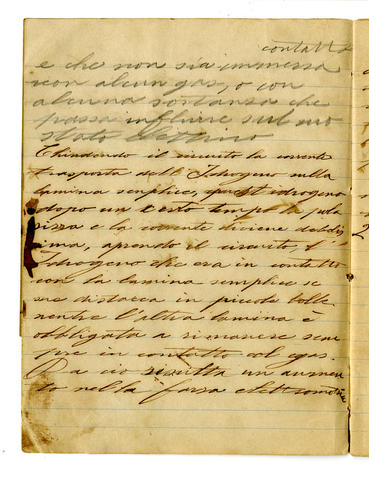 contatto
e che non sia immersa
con alcun gas, o con
alcuna sostanza che
possa influire sul suo
stato elettrico
Chiudendo il circuito la corrente
trasporta dell'Idrogeno sulla
lamina semplice, quest'idrogeno
dopo un certo tempo la pola
rizza e la corrente diviene debolis
sima, aprendo il circuito, l'
Idrogeno che era in contatto
con la lamina semplice se
ne distacca in piccole bolle
mentre l'altra lamina è
obbligata a rimanere sem
pre in contatto col gas.
Da ciò risulta un aumen
to nella forza elettromotrice